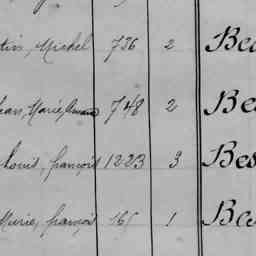 tin, Michel 736 2 Bea
Jean, Marie, 748 2 Be
Louis, françois 1223 3 Bes
Marie, françois 165 1 Be